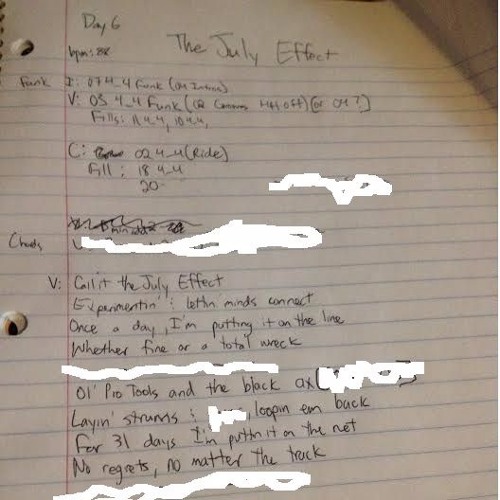 Day 6
The July Effect
bpm: 88
Funk I: 07 4_4 Funk (04 Intense)
V: 03 4_4 Funk (02 Common HH off) (or 04?)
Fills: 11 4-4, 10 4-4,
C: 02 4_4 (Ride)
Fill: 18 4-4
20
Chords
V: Call it the July Effect
Experimentin': lettin' minds connect
Once a day, I'm putting it on the line
Whether fine or a total wreck
Ol' Pro Tools and the black ax
Layin' strums : loopin em back
For 31 days I'm puttin it on the net
No regrets, no matter the track